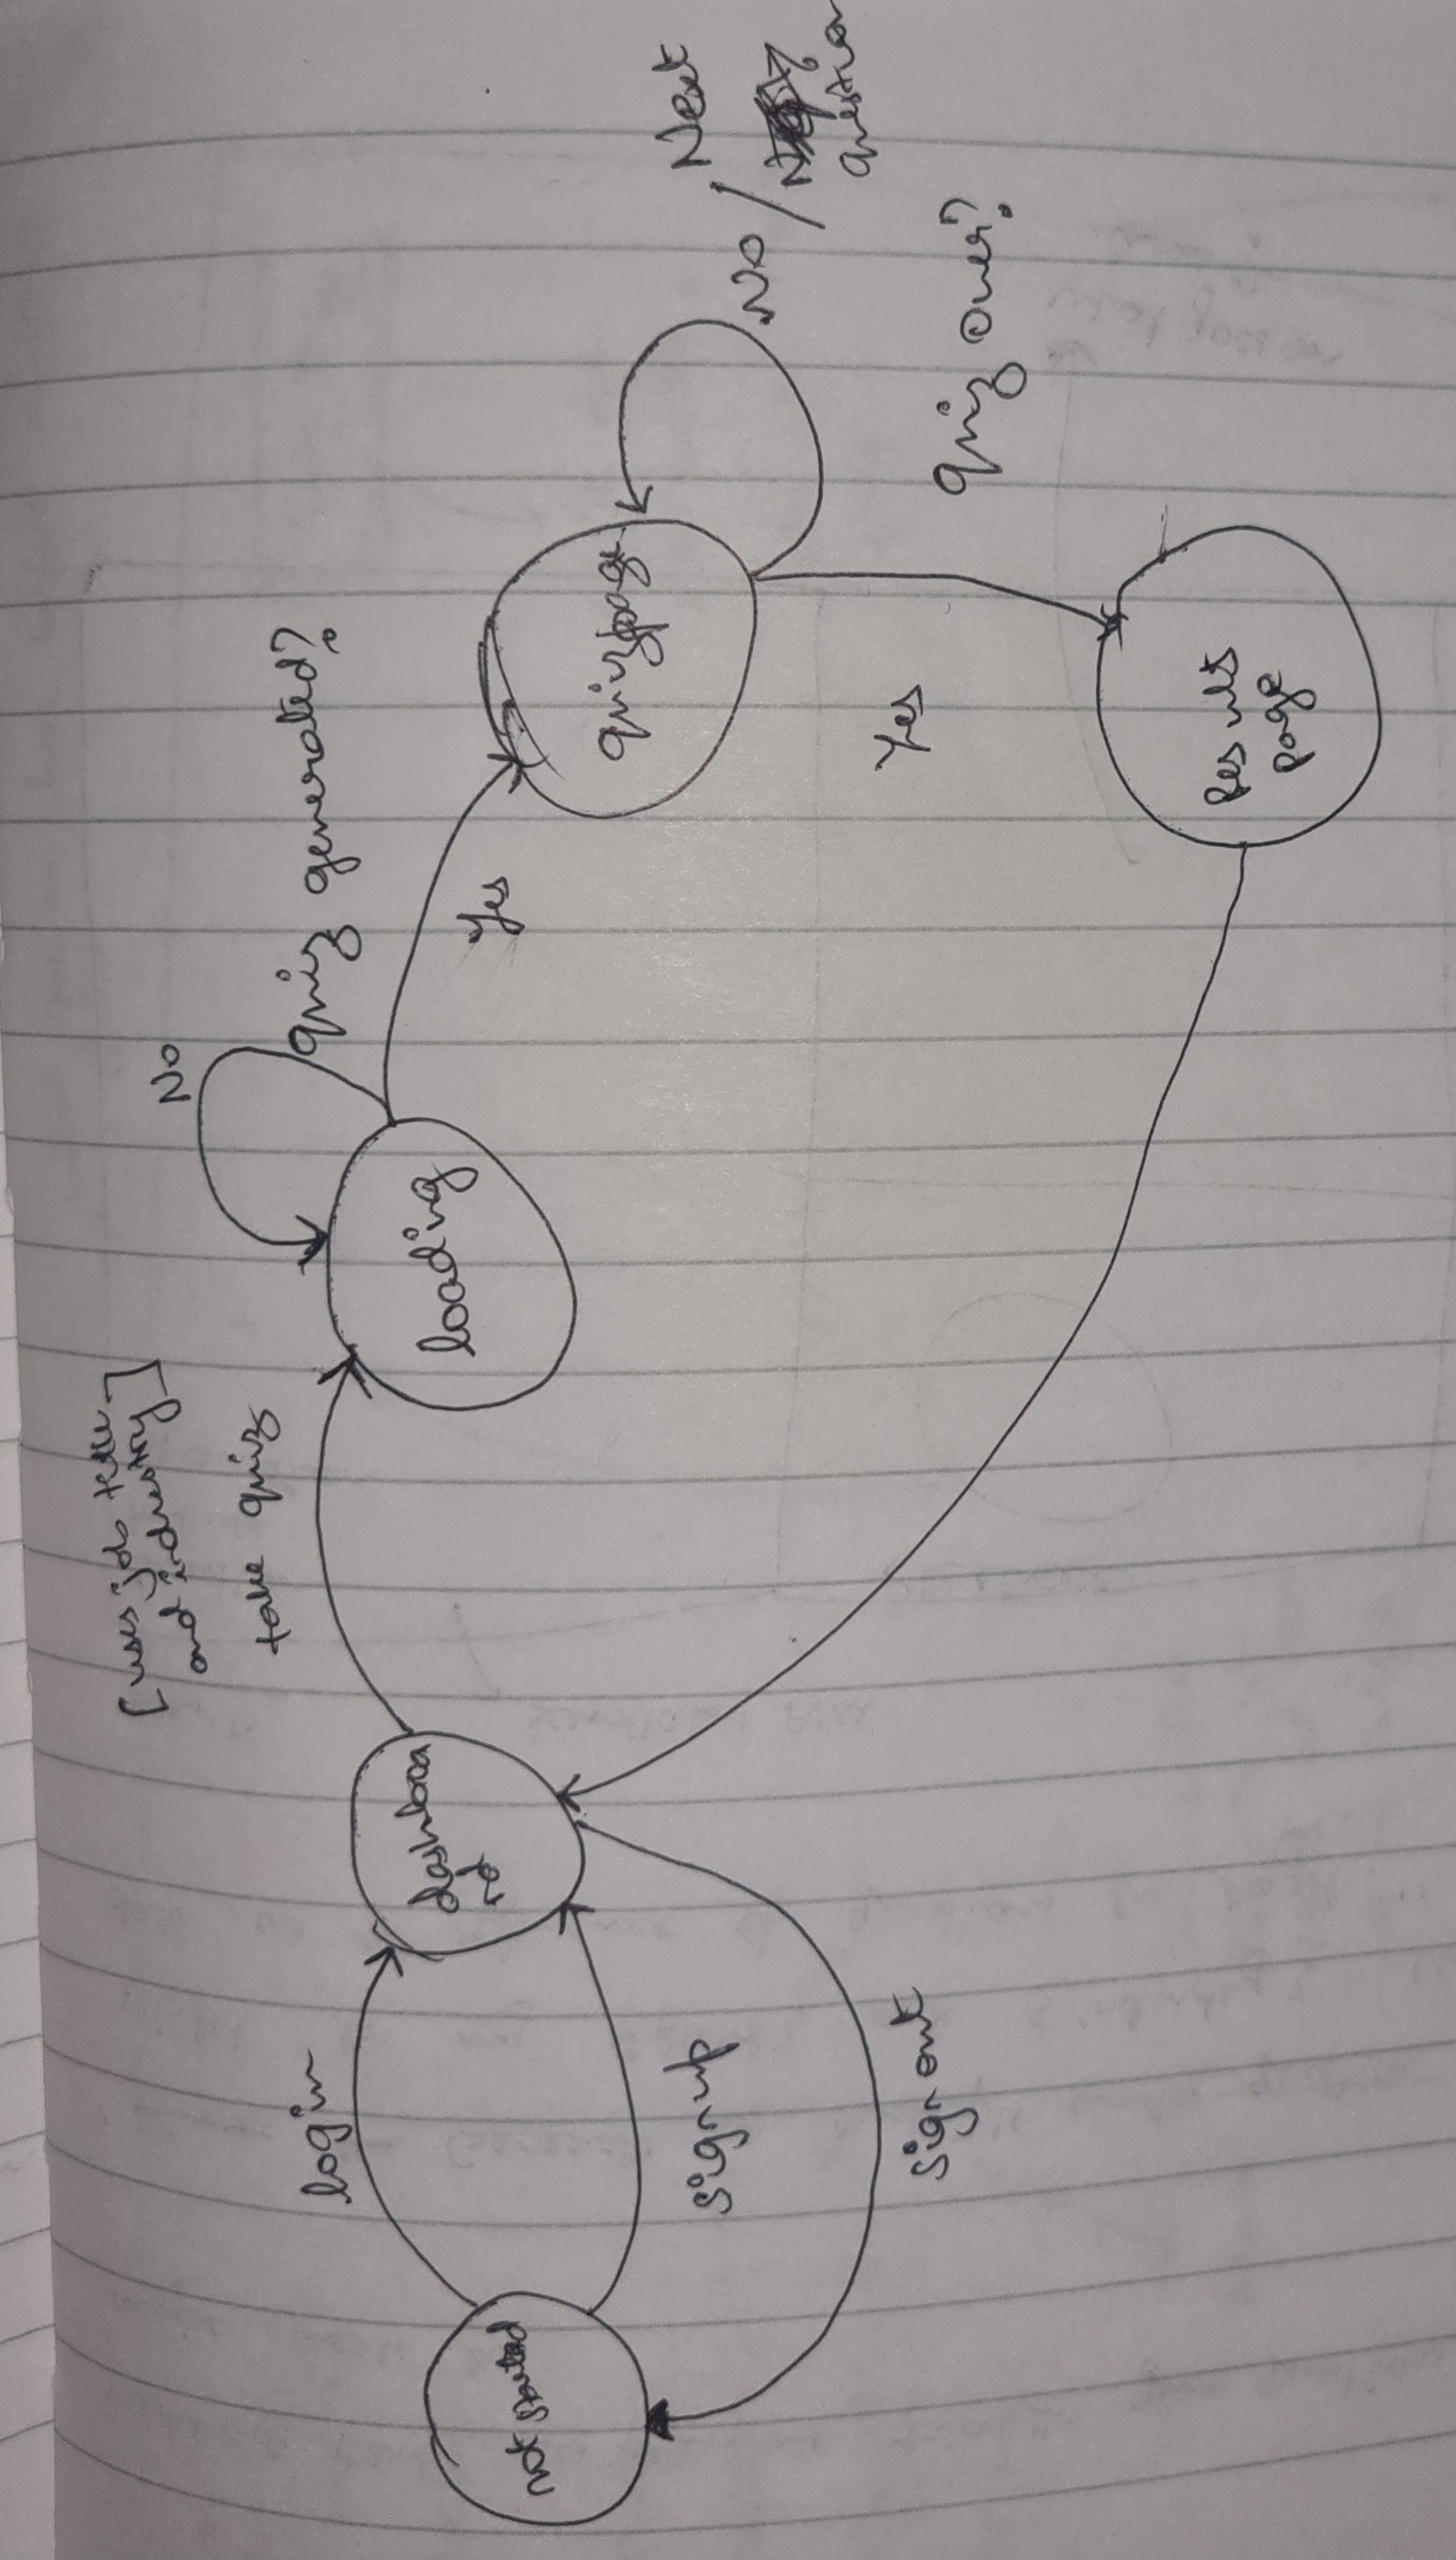 not started
login
signup
sign out
dashboa
rd
[uses job title
and industry]
take quiz
loading
No
quiz generated?
Yes
quizpage
No / Next
question
quiz over?
Yes
Results
page